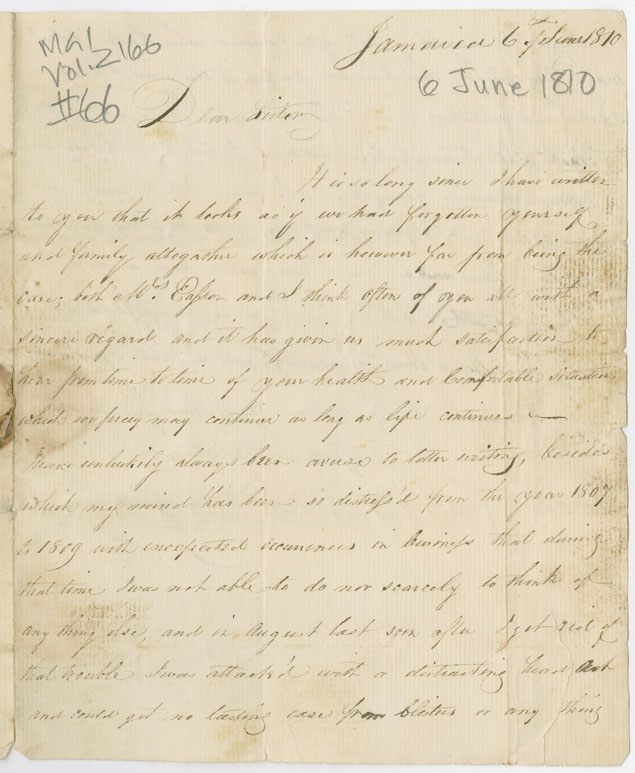 MG1
Vol. 2166
#66
Jamaica 6th June 1810
6 June 1810
Dear Sister
It is so long since I have written
to you that it looks as if we had forgotten yourself
and family altogether which is however far from being the
case; both Mrs. Easson and I think often of you all with a
sincere regard and it has given us much satisfaction to
hear from time to time of your health and Comfortable situation
which we pray may continue as long as life continues —
I have unluckily always been averse to letter writing, besides
which my mind has been so distress'd from the year 1807
to 1809 with unexpected occurrences in business that during
that time I was not able to do nor scarcely to think of
any thing else, and in August last soon after I got rid of
that trouble I was attack'd with a distracting head ach
and could get no lasting ease from blisters or any thing